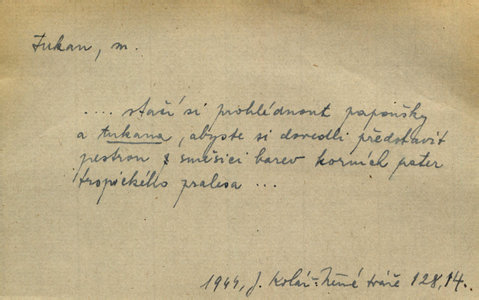 Tukan, m.
.... stačí si prohlédnout papoušky
a tukana, abyste si dovedli představit
pestrou směsici barev horních pater
tropického pralesa ...
1944, J. Kolář: Němé tváře 128,14.